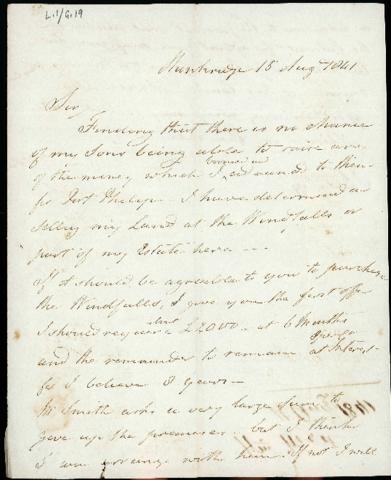 L.1/G.19
15 Aug 1841
Sir
Finding that there is no chance
of my Sons being able to raise any
of the money which I advanced to them
for Port Phillip I have determined on
selling my Land at the Windfalls or
part of my Estate here ---
If it should be agreeable to you to purchase
the Windfalls, I give you the first offer
I should require about £2000 - at 6 Months
and the remainder to remain at Interest
for I believe 8 years -
Mr Smith asks a very large Sum to
give up the premises. but I think
I can arrange with him. If not I will